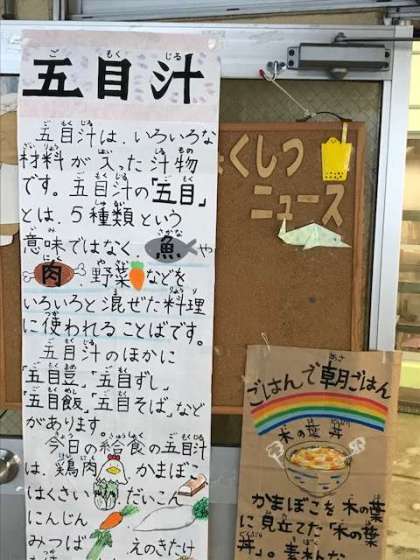 五目汁
五目汁は、いろいろな
材料が入った汁物
です。五目汁の「五目」
とは、5種類という
意味ではなく、魚や
肉、野菜などを
いろいろと混ぜた料理
に使われることばです。
五目汁のほかに
「五目豆」「五目ずし」
「五目飯」「五目そば」など
があります。
今日の給食の五目汁
は、鶏肉、かまぼこ
はくさい、だいこん
にんじん
みつば えのきたけ
くしつ
ニュース
ごはんで朝ごはん
木の葉丼
かまぼこを木の葉
に見立てた「木の葉
丼」。